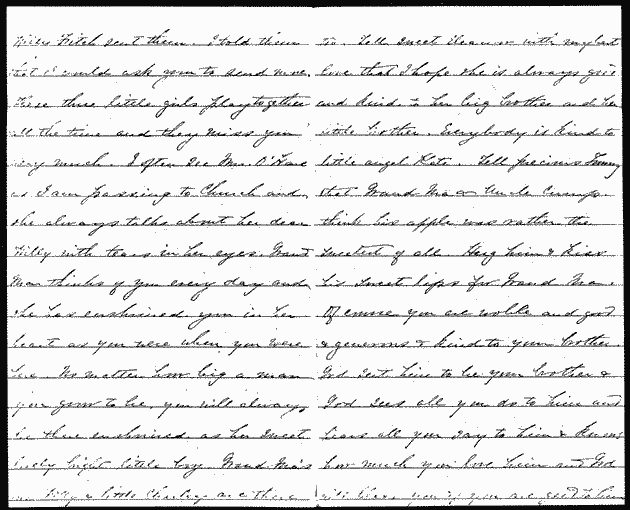 Willy Fitch sent them. I told them
that I would ask you to send more.
These three little girls play together
all the time and they miss you
very much. I often see Mrs. O'Hare
as I am passing to Church and
she always talks about her dear
Willy with tears in her eyes. Grand
Man thinks of you every day and
she has enshrined you in her
heart as you were when you were
here. No matter how big a man
you grow to be, you will always
be there enshrined as her sweet
bright little boy. Grand Ma's
Willy & little Charley are there
to. Tell sweet Eleanor with my best
love that I hope she is always good
and kind to her big brother and her
little brother. Everybody is kind to
little angel Kate. Tell precious Tommy
that Grand Ma & Uncle Crump
think his apple was rather the
sweetest of all. Hug him & kiss
his sweet lips for Grand Ma.
Of course you are noble and good
& generous & kind to your brother.
God sent him to be your brother &
God sees all you do to him and
hears all you say to him & knows
how much you love him and God
will bless you if you are good to him